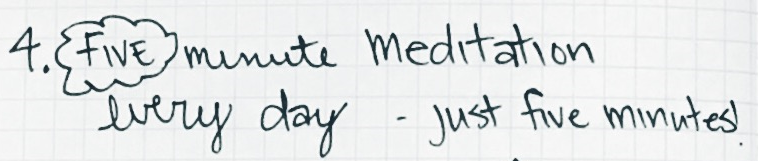 4. FIVE minute meditation
every day - just five minutes!